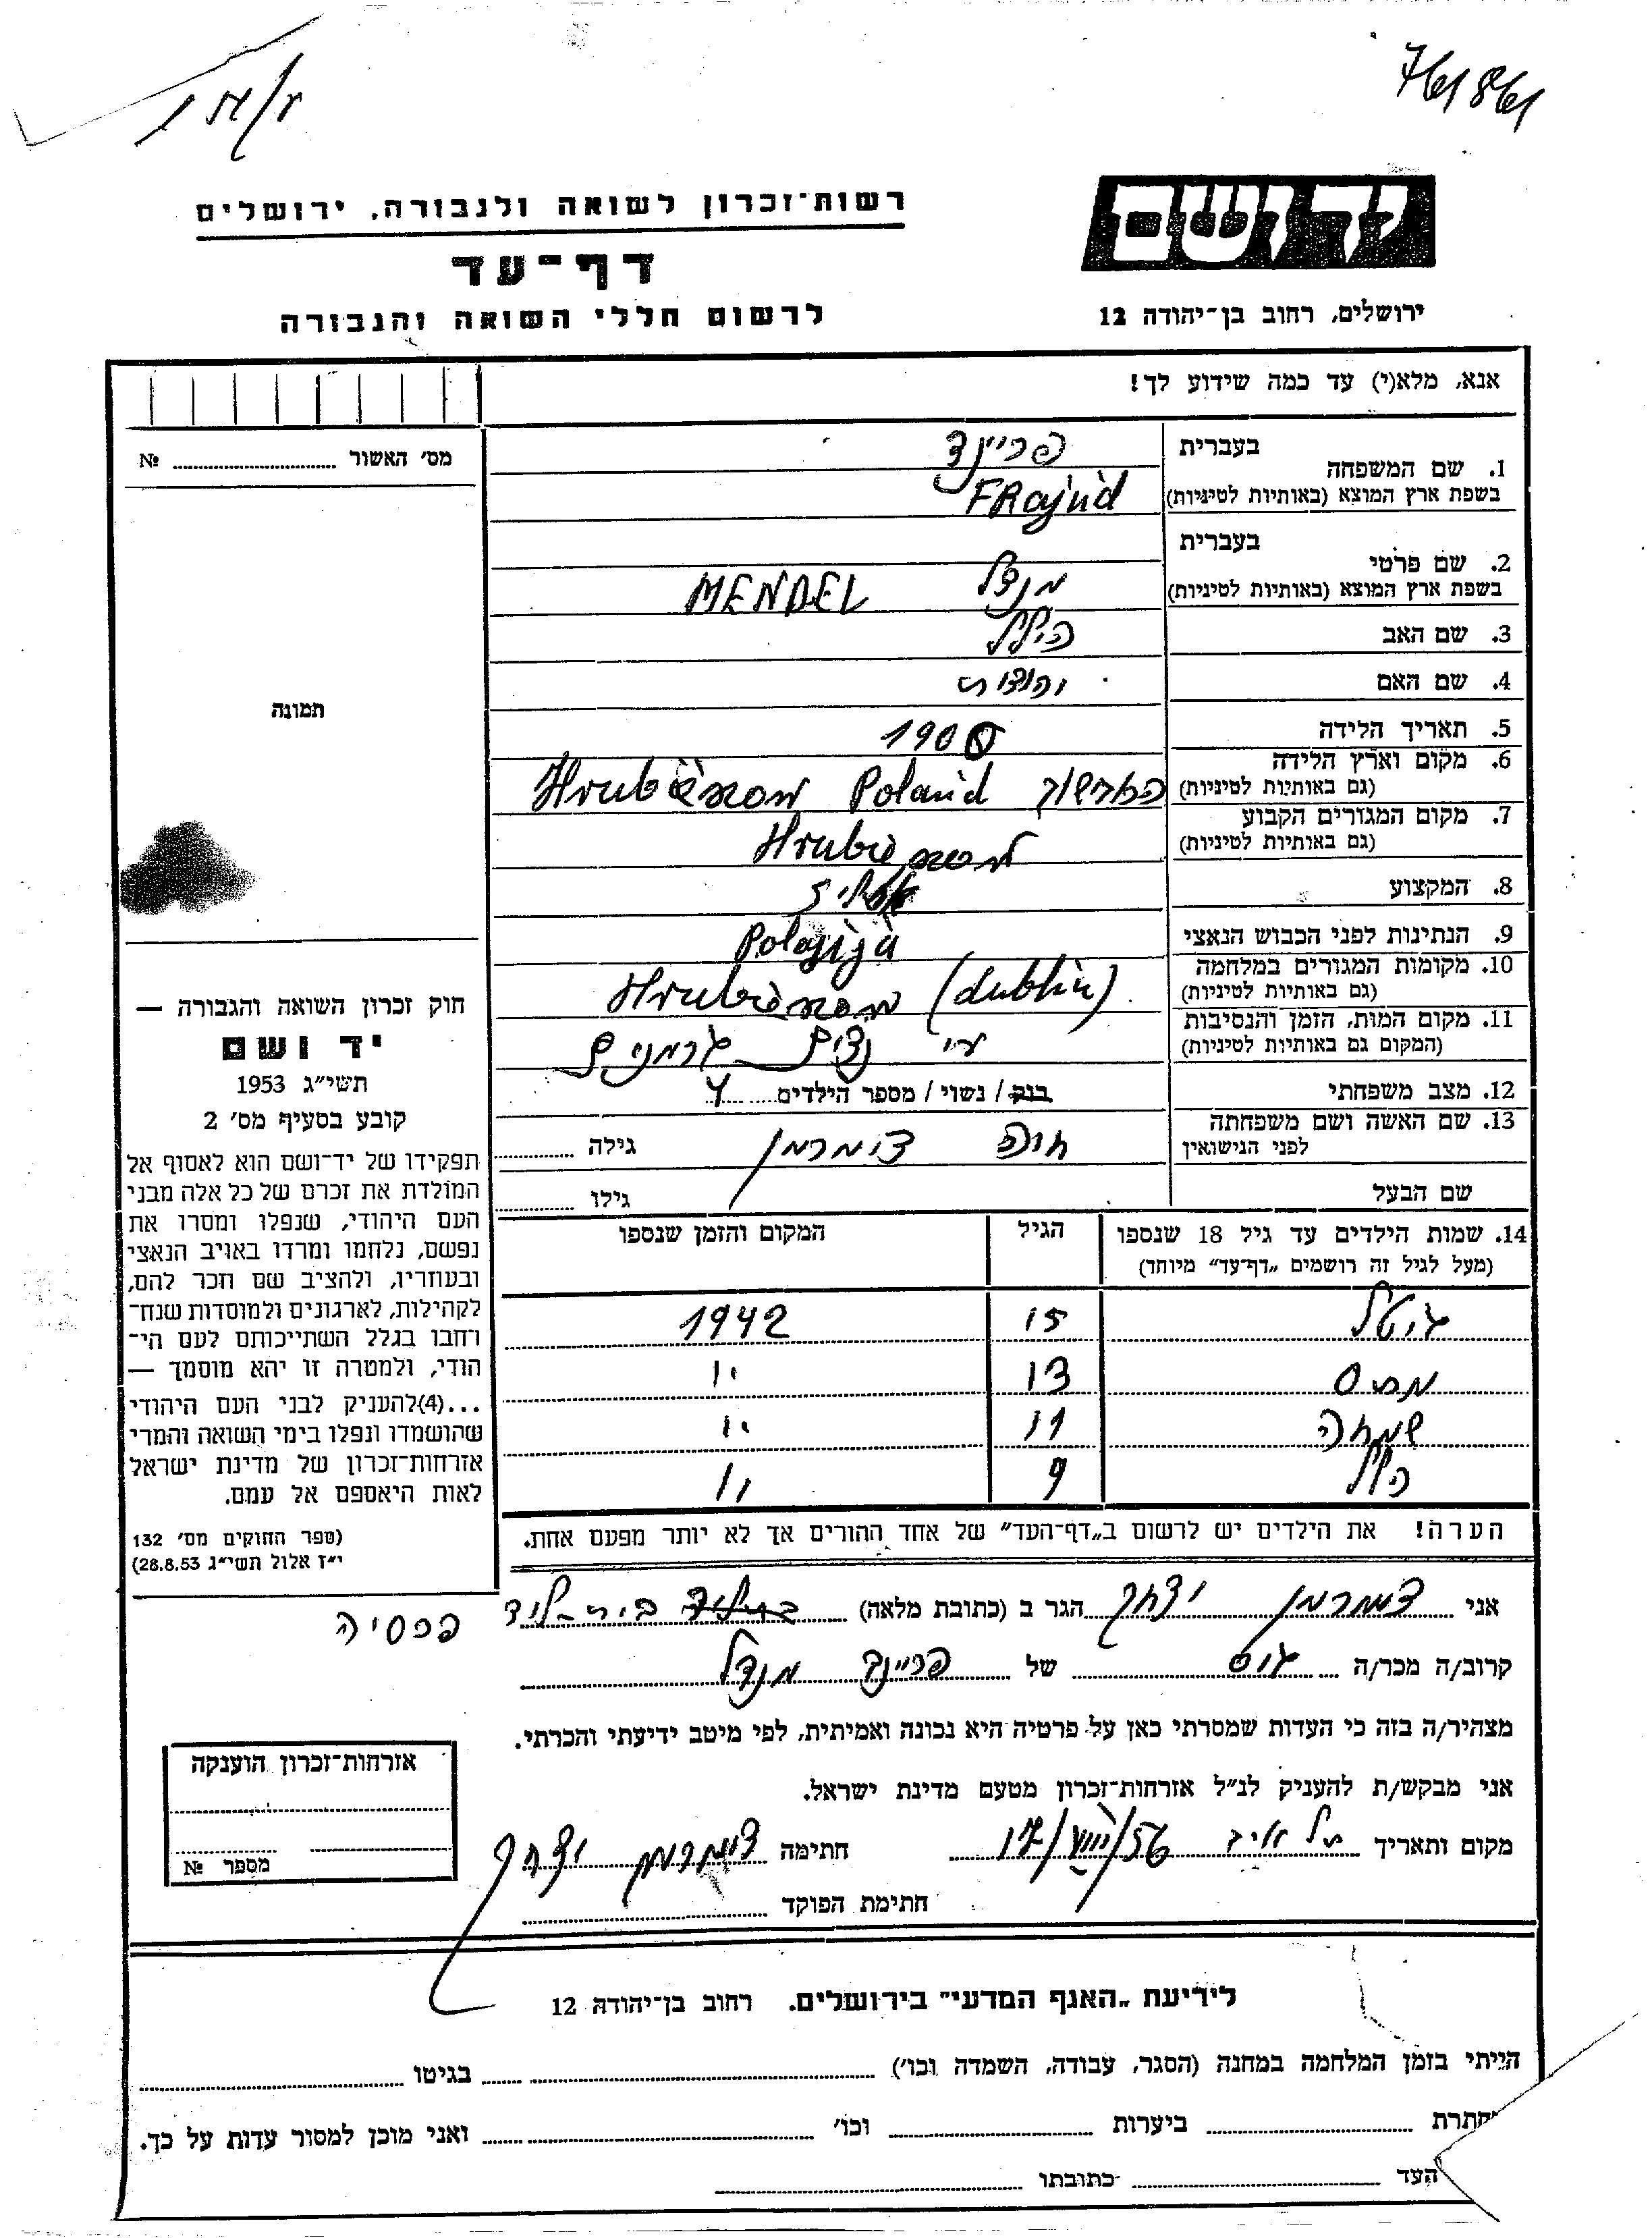 761861
יד ושם
ירושלים, רחוב בן־יהודה 12
רשות־זכרון לשואה ולגבורה, ירושלים
דף־עד
לרשום חללי השואה והגבורה
אנא, מלא(י) עד כמה שידוע לך!
מס׳ האשור № 
1. שם המשפחה בעברית פריינד
בשפת ארץ המוצא (באותיות לטיניות) FRajnd
2. שם פרטי בעברית מנדל
בשפת ארץ המוצא (באותיות לטיניות) MENDEL
3. שם האב הלל
4. שם האם
5. תאריך הלידה 1900
6. מקום וארץ הלידה
(גם באותיות לטיניות) Poland
7. מקום המגורים הקבוע
(גם באותיות לטיניות)
8. המקצוע
9. הנתינות לפני הכבוש הנאצי
10. מקומות המגורים במלחמה
(גם באותיות לטיניות) (dublin)
11. מקום המות, הזמן והנסיבות
(המקום גם באותיות לטיניות) ע״י נצים גרמנים
12. מצב משפחתי רוק / נשוי / מספר הילדים 4
13. שם האשה ושם משפחתה
לפני הנישואין חוה צימרמן גילה
שם הבעל גילו
14. שמות הילדים עד גיל 18 שנספו הגיל המקום והזמן שנספו
(מעל לגיל זה רושמים „דף־עד" מיוחד)
גיטל 15 1942
13 "
שמחה 11 "
הלל 9 "
הערה! את הילדים יש לרשום ב„דף־העד" של אחד ההורים אך לא יותר מפעם אחת.
תמונה
חוק זכרון השואה והגבורה —
יד ושם
תשי״ג 1953
קובע בסעיף מס׳ 2
תפקידו של יד־ושם הוא לאסוף אל
המולדת את זכרם של כל אלה מבני
העם היהודי, שנפלו ומסרו את
נפשם, נלחמו ומרדו באויב הנאצי
ובעוזריו, ולהציב שם וזכר להם,
לקהילות, לארגונים ולמוסדות שנח־
רחבו בגלל השתייכותם לעם הי־
הודי, ולמטרה זו יהא מוסמך —
...(4)להעניק לבני העם היהודי
שהושמדו ונפלו בימי השואה והמרי
אזרחות־זכרון של מדינת ישראל
לאות היאספם אל עמם.
(ספר החוקים מס׳ 132
י״ז אלול תשי״ג 28.8.53)
אני צימרמן יצחק הגר ב (כתובת מלאה) בית־ליד פרסיה
קרוב/ה מכר/ה גיס של פריינד מנדל
מצהיר/ה בזה כי העדות שמסרתי כאן על פרטיה היא נכונה ואמיתית, לפי מיטב ידיעתי והכרתי.
אני מבקש/ת להעניק לנ״ל אזרחות־זכרון מטעם מדינת ישראל.
מקום ותאריך 17/VIII/56 חתימה צימרמן יצחק
חתימת הפוקד
אזרחות־זכרון הוענקה
מספר №
לידיעת „האגף המדעי" בירושלים. רחוב בן־יהודה 12
הייתי בזמן המלחמה במחנה (הסגר, עבודה, השמדה וכו׳) בגיטו
חתרת ביערות וכו׳ ואני מוכן למסור עדות על כך.
העד כתובתו